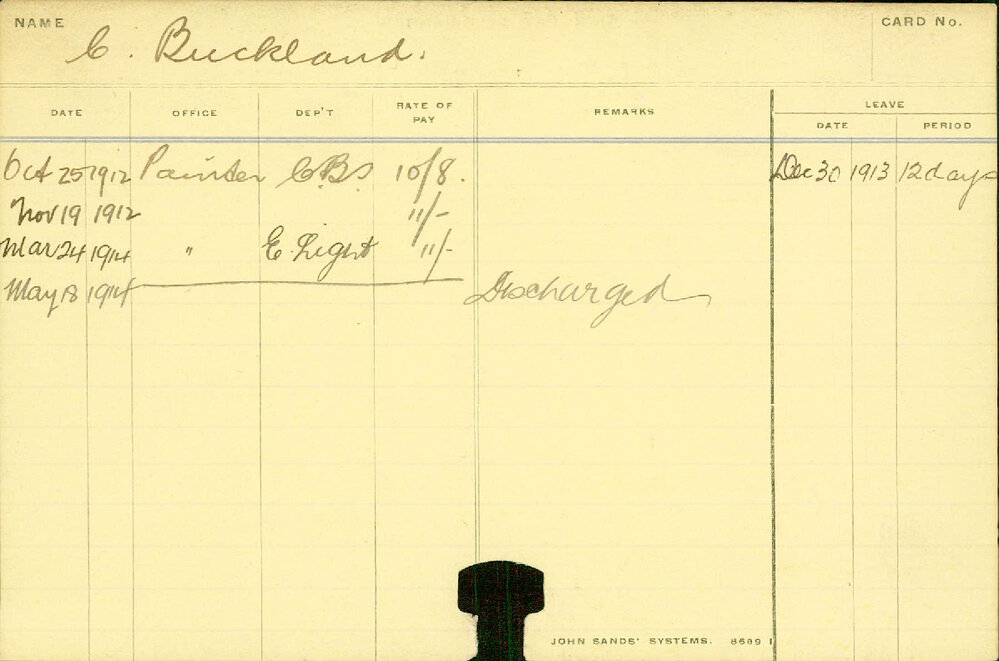 NAME C. Buckland. CARD No.
LEAVE
DATE OFFICE DEP'T RATE OF PAY REMARKS DATE PERIOD
Oct 25 1912 Painter C.B.S. 10/8. Dec 30 1913 12 days
Nov 19 1912 11/-
Mar 24 1914 " E. Light 11/-
May 18 1914 Discharged
JOHN SANDS' SYSTEMS. 8689